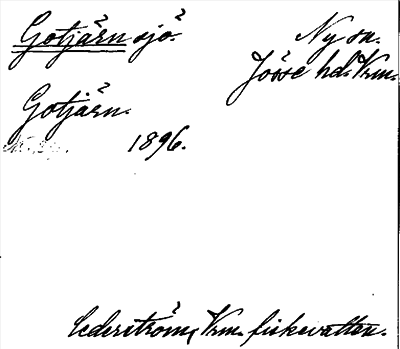 Gotjärn sjö.
Ny sn.
Jösse hd. Vrm.
Gotjärn.
1896.
Cederström, Vrm. fiskevatten.